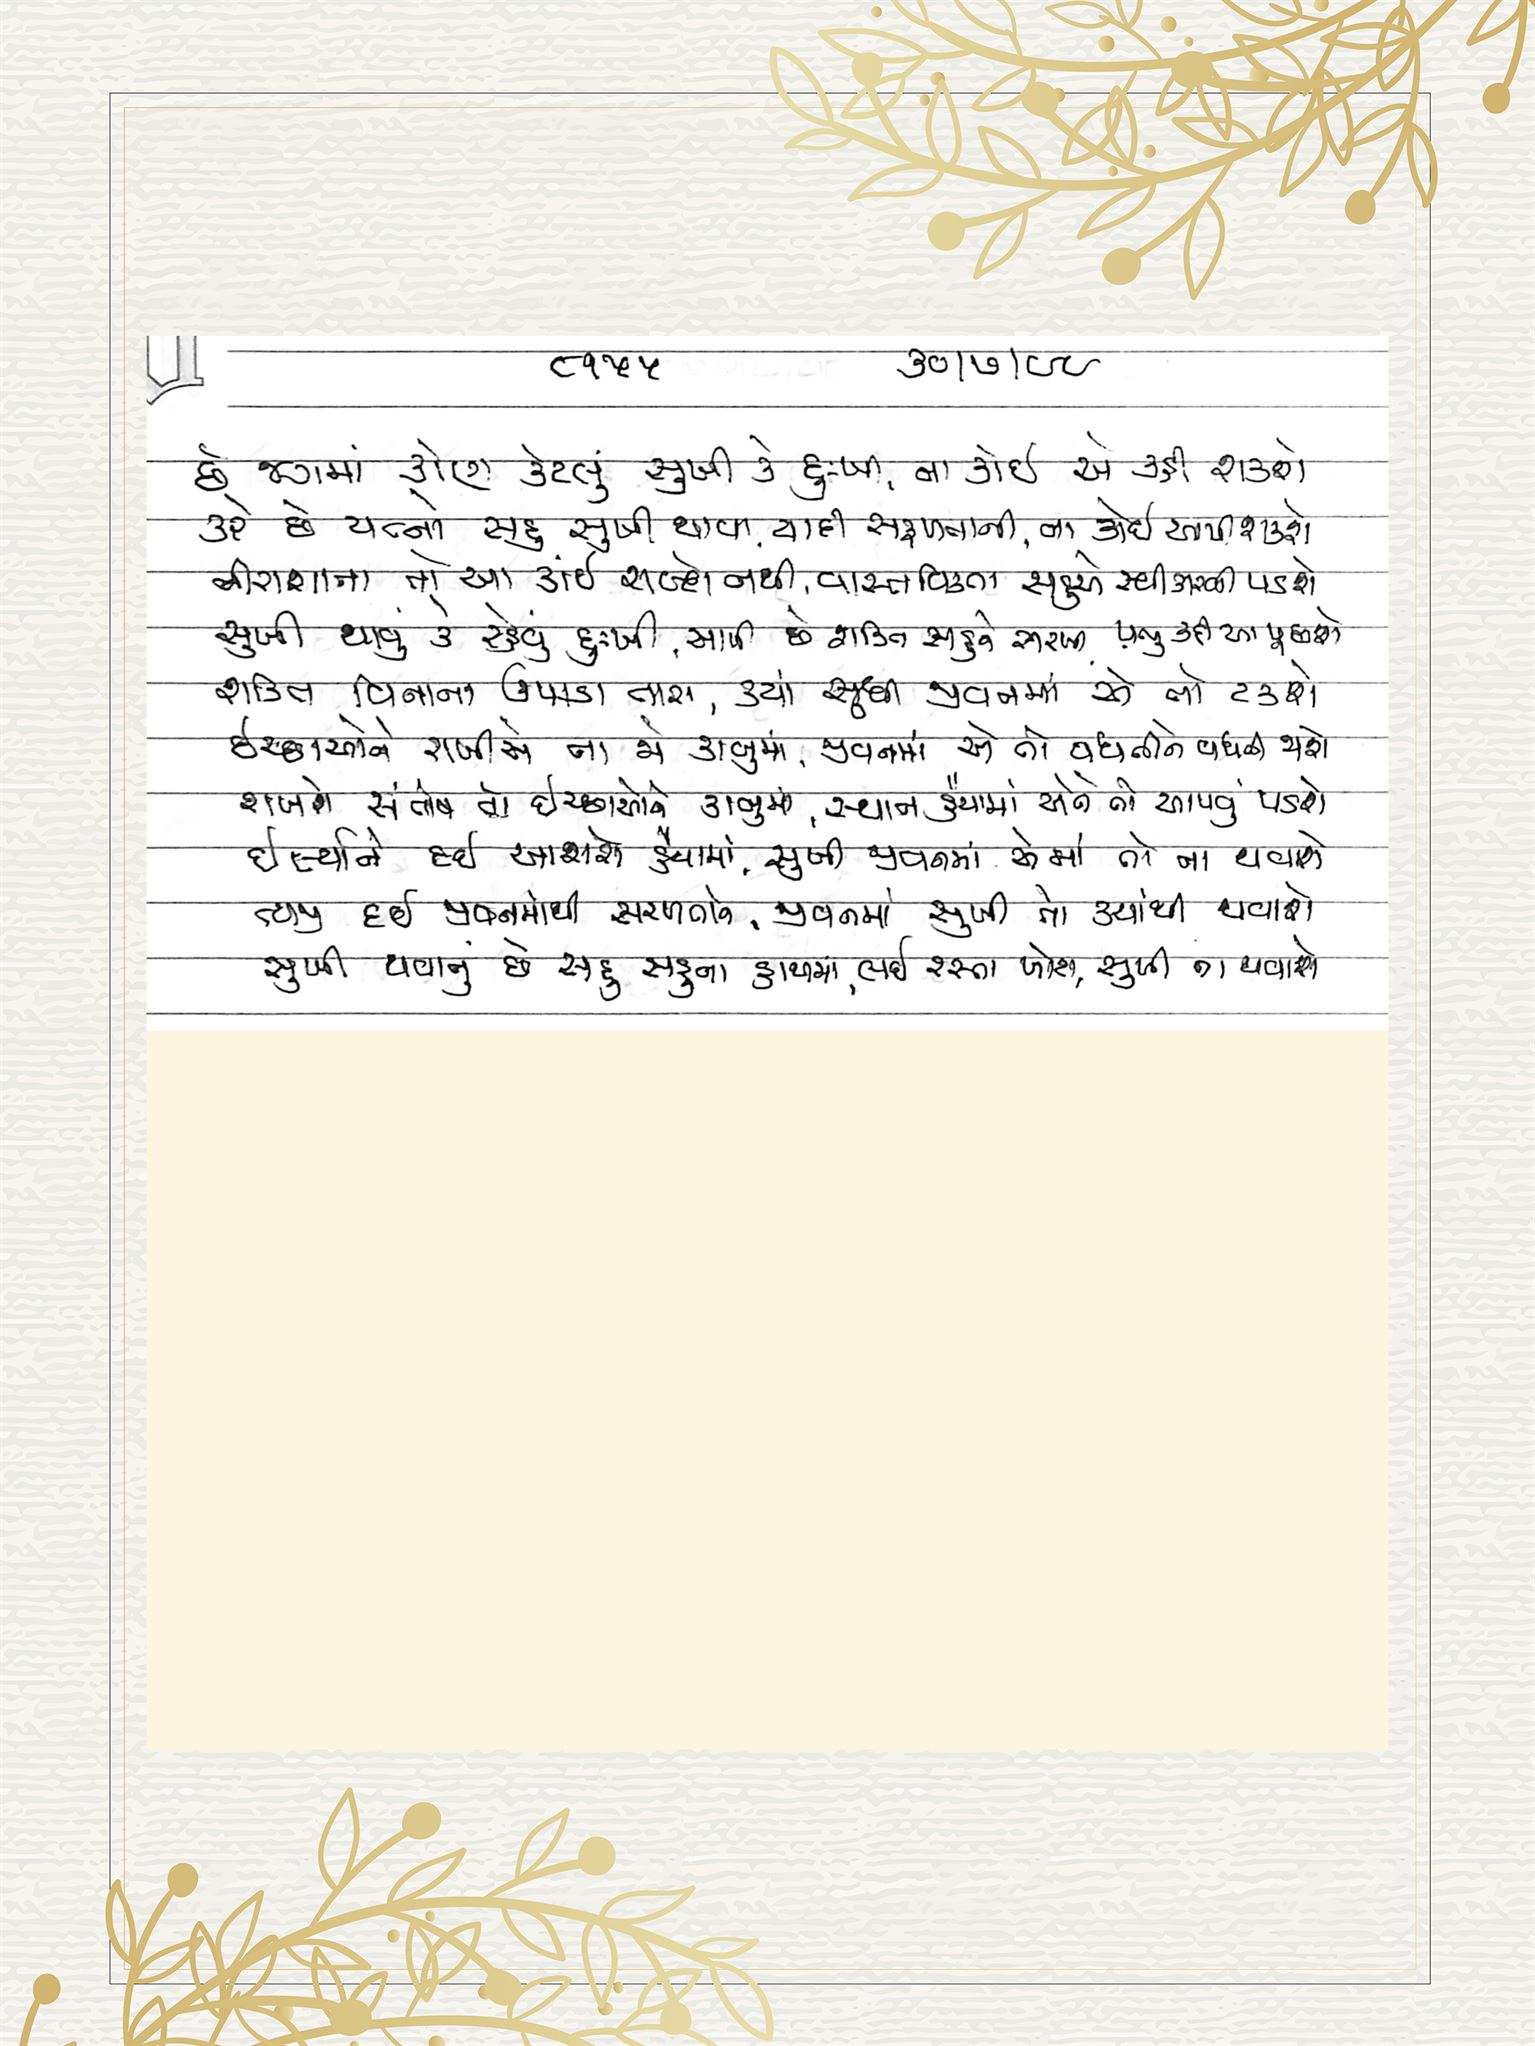 ૯૧૫૫ ૩૦/૭/૯૯
છે જગમાં કોણ કેટલું સુખી કે દુઃખી, ના કોઈ એ કહી શકશે
કરે છે યત્નો સહુ સુખી થાવા, યાદી સફળતાની, ના કોઈ આપી શકશે
નીરાશાના તો આ કાંઈ શબ્દો નથી, વાસ્તવિક્તા સહુએ સ્વીકારવી પડશે
સુખી થાવું કે રહેવું દુઃખી, આપી છે શક્તિ સહુને સરખી, પ્રભુ કદી આ પૂછશે
શક્તિ વિનાના ઉપાડા તારા, ક્યાં સુધી જીવનમાં એ તો ટકશે
ઈચ્છાઓને રાખીશ ના જો કાબુમાં, જીવનમાં એ તો વધતીને વધતી જાશે
રાખશે સંતોષ તો ઈચ્છાઓને કાબુમાં, સ્થાન હૈયામાં એને તો આપવું પડશે
ઈર્ષ્યાને દઈ આશરો હૈયામાં, સુખી જીવનમાં એમાં તો ના થવાશે
ત્યજી દઈ જીવનમાંથી સરળતાને, જીવનમાં સુખી તો ક્યાંથી થવાશે
સુખી થવાનું છે સહુ સહુના હાથમાં, લઈ રસ્તા ખોટા, સુખી ના થવાશે